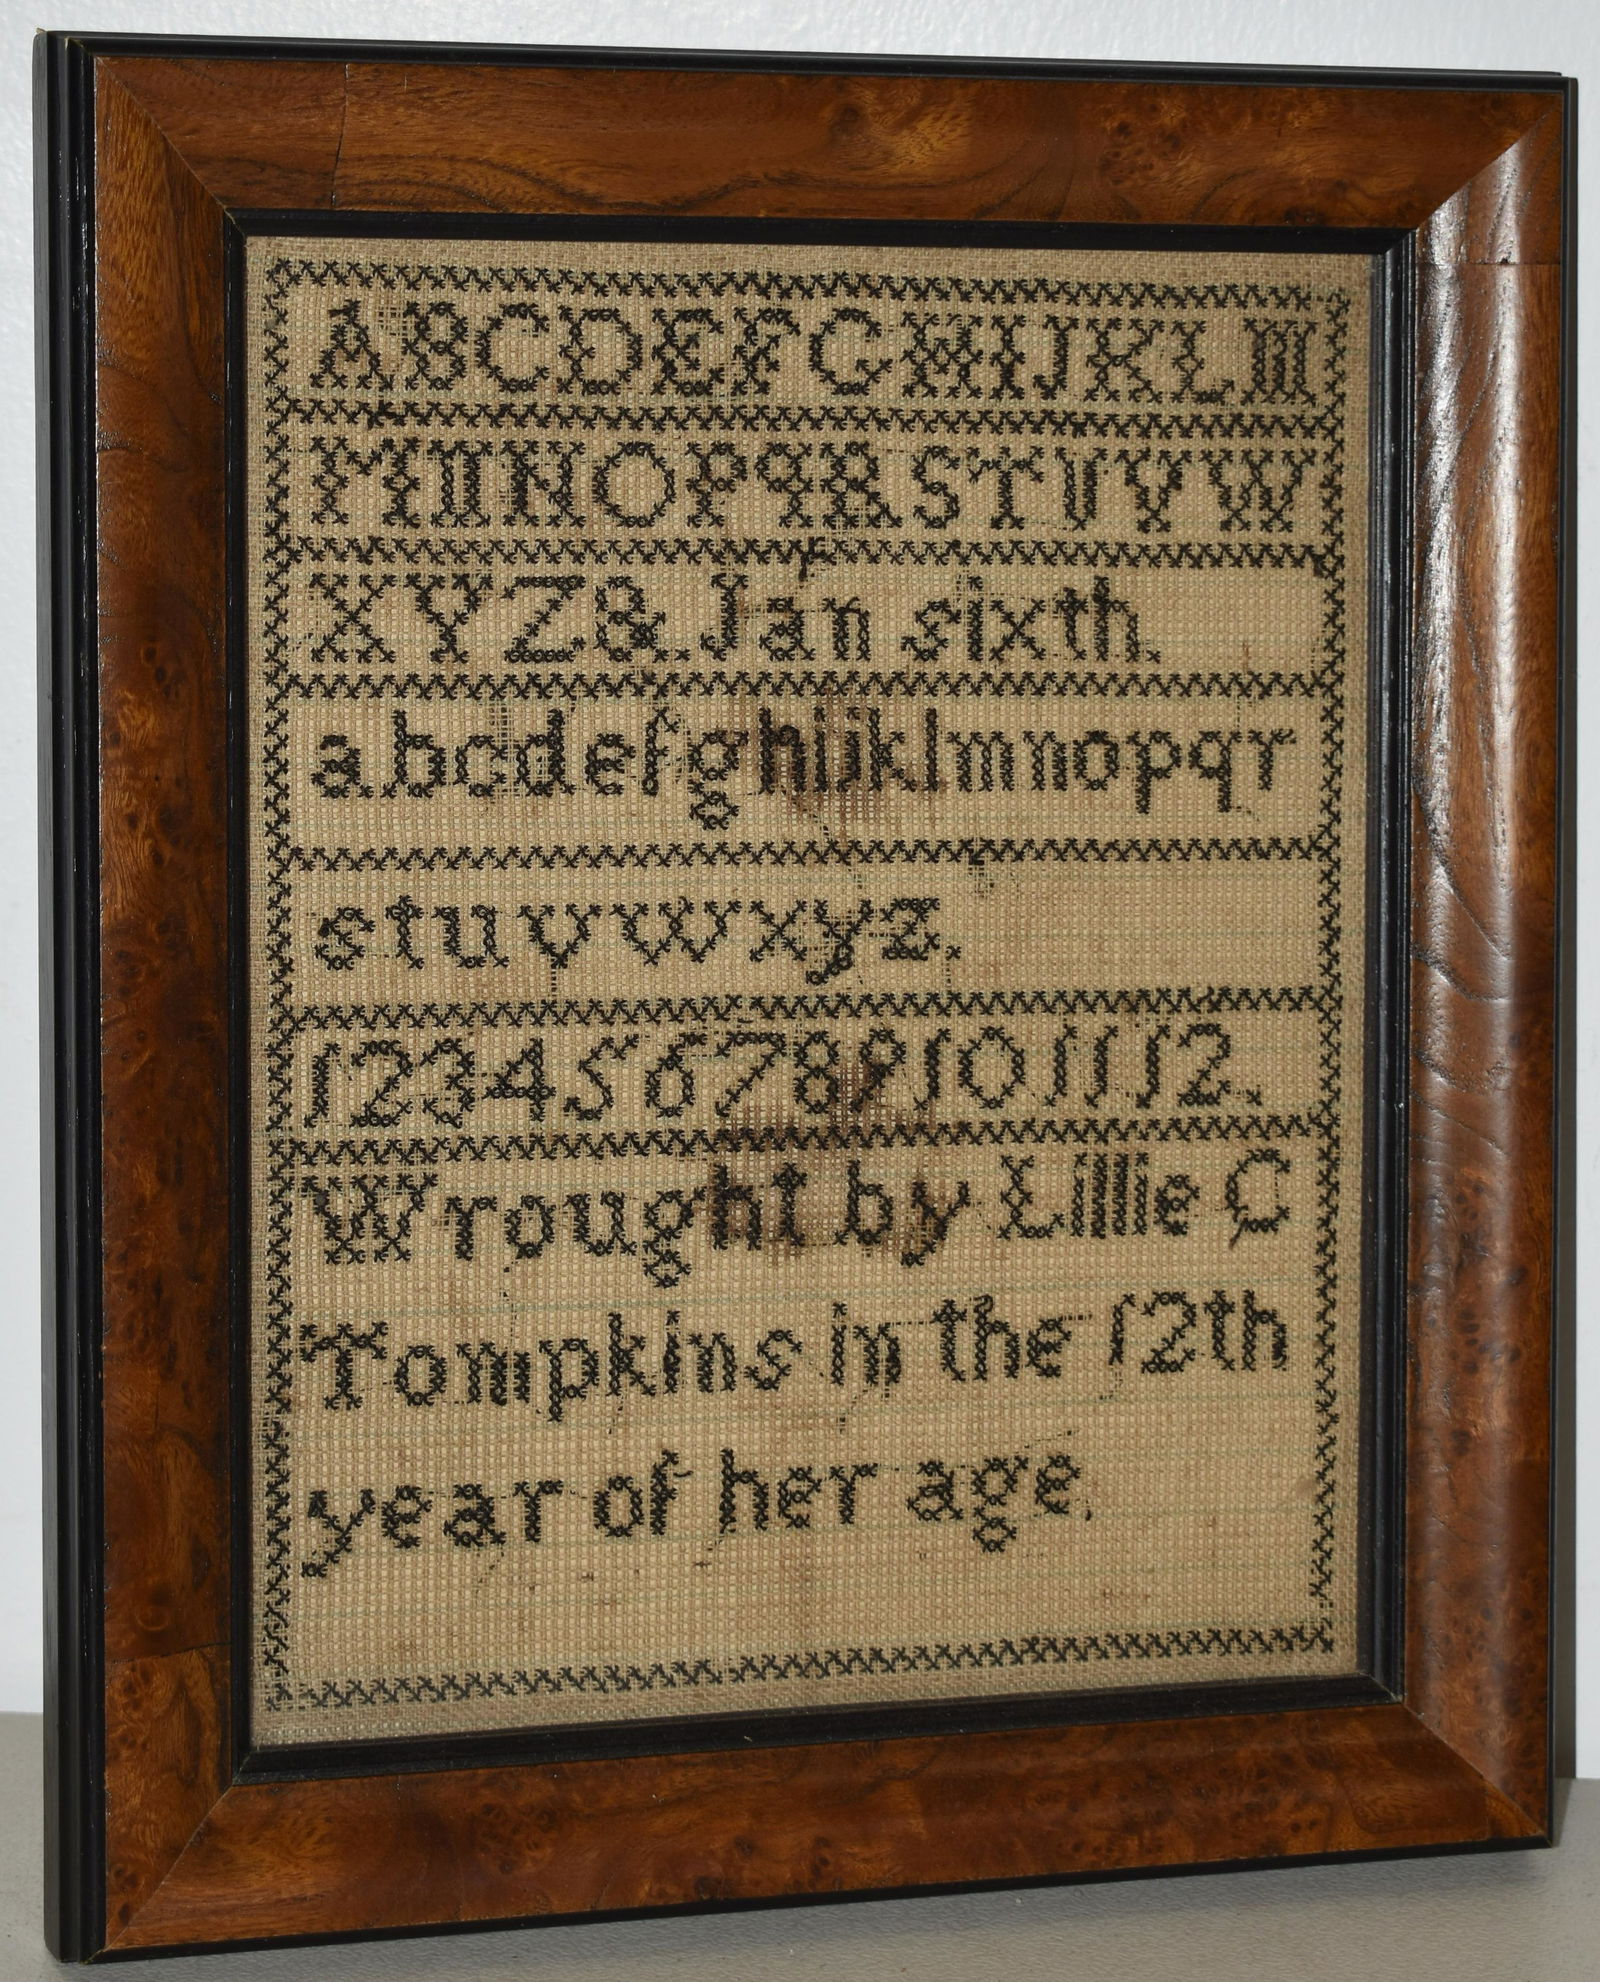 ABCDEFGHIJKLM
MNOPQRSTUVW
XYZ&.Jan sixth.
abcdefghijklmnopqr
stuvwxyz.
123456789101112.
Wrought by Lillie C
Tompkins in the 12th
year of her age.